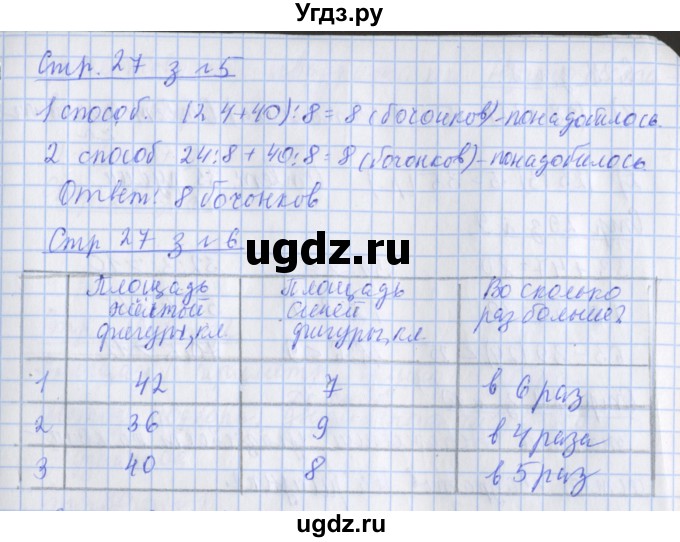 Угдз.ру
Стр. 27 з №5
1 способ. (24+40):8=8 (бочонков)-понадобилось.
2 способ 24:8+40:8=8 (бочонков)-понадобилось
Ответ: 8 бочонков
Стр 27 з №6
ugdz.ru
Площадь жёлтой фигуры, кл.
Площадь синей фигуры, кл.
Во сколько раз больше?
1 42 7 в 6 раз
2 36 9 в 4 раза
3 40 8 в 5 раз
ugdz.ru